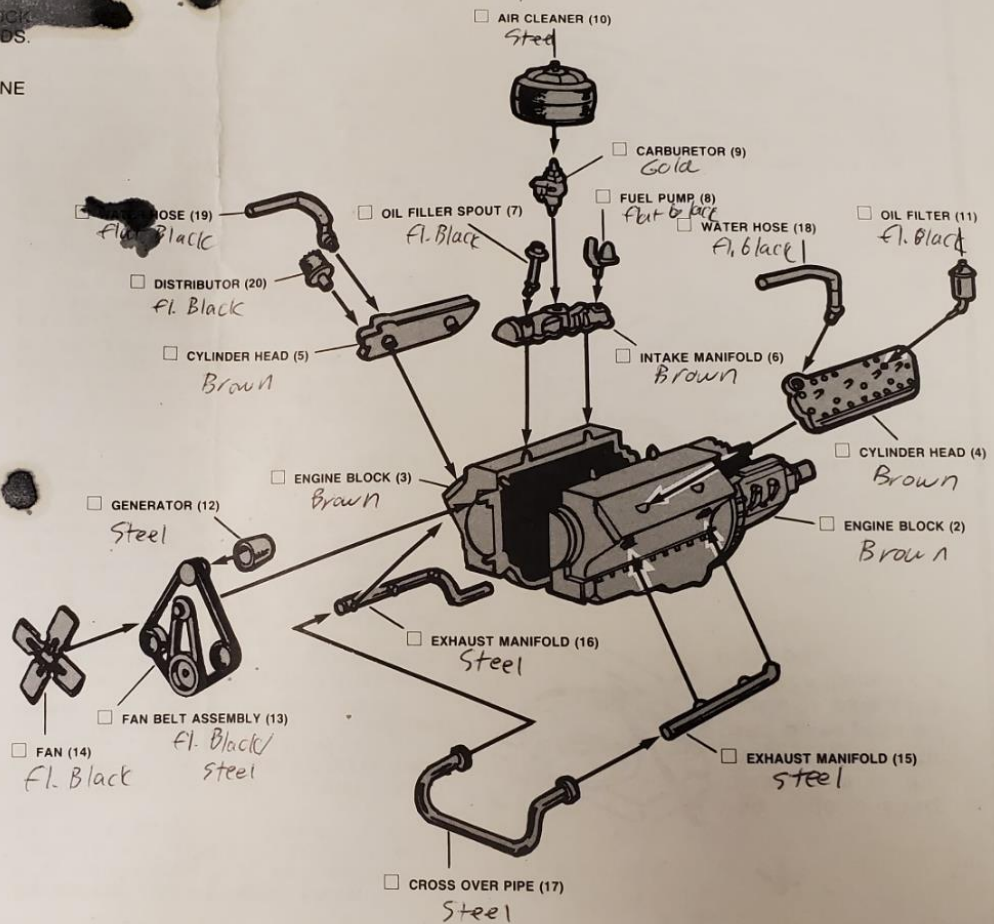 ICK
DS.
NE
☐ AIR CLEANER (10)
Steel
☐ CARBURETOR (9)
Gold
☐ FUEL PUMP (8)
flat black
☐ OIL FILLER SPOUT (7)
fl. Black
HOSE (19)
Black
☐ WATER HOSE (18)
fl. Black
☐ OIL FILTER (11)
fl. Black
☐ DISTRIBUTOR (20)
fl. Black
☐ CYLINDER HEAD (5)
Brown
☐ INTAKE MANIFOLD (6)
Brown
☐ CYLINDER HEAD (4)
Brown
☐ ENGINE BLOCK (3)
Brown
☐ GENERATOR (12)
Steel
☐ ENGINE BLOCK (2)
Brown
☐ EXHAUST MANIFOLD (16)
Steel
☐ FAN BELT ASSEMBLY (13)
fl. Black/
Steel
☐ FAN (14)
fl. Black
☐ EXHAUST MANIFOLD (15)
Steel
☐ CROSS OVER PIPE (17)
Steel